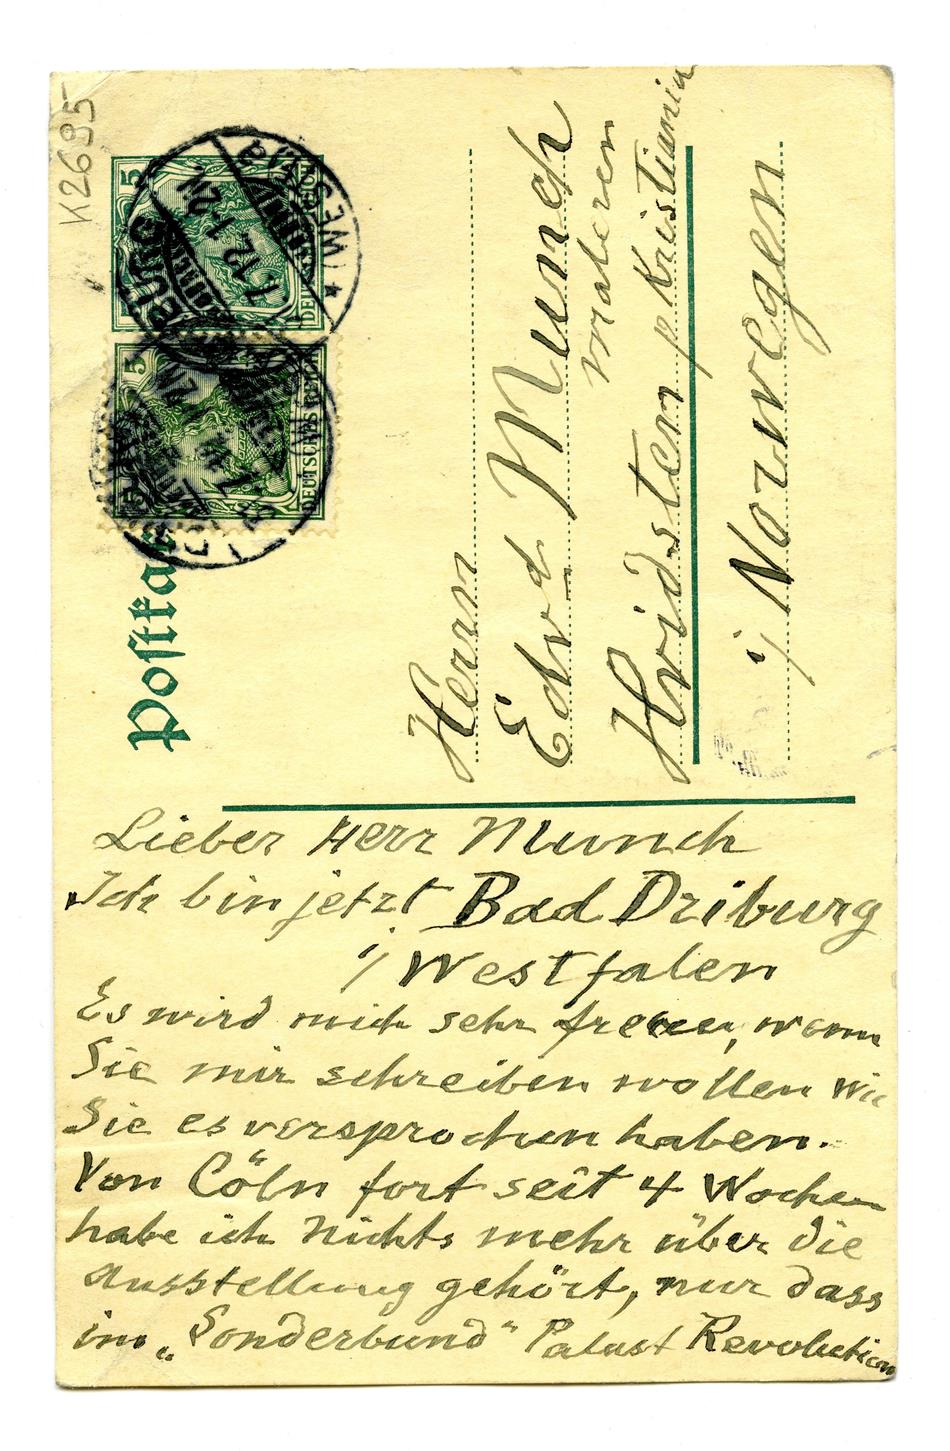 K2695
5
5
DEUTSCHES REICH
7.12. 1-2N.
Postka
Herrn
Edvd Munch
maleren
Hvidsten p Kristiania
i/ Norwegen
Lieber Herr Munch
Ich bin jetzt Bad Driburg
i/ Westfalen
Es wird mich sehr freuen, wenn
Sie mir schreiben wollen wie
Sie es versprochen haben.
Von Cöln fort seit 4 Wochen
habe ich Nichts mehr über die
Ausstellung gehört, nur dass
im „Sonderbund" Palast Revolution